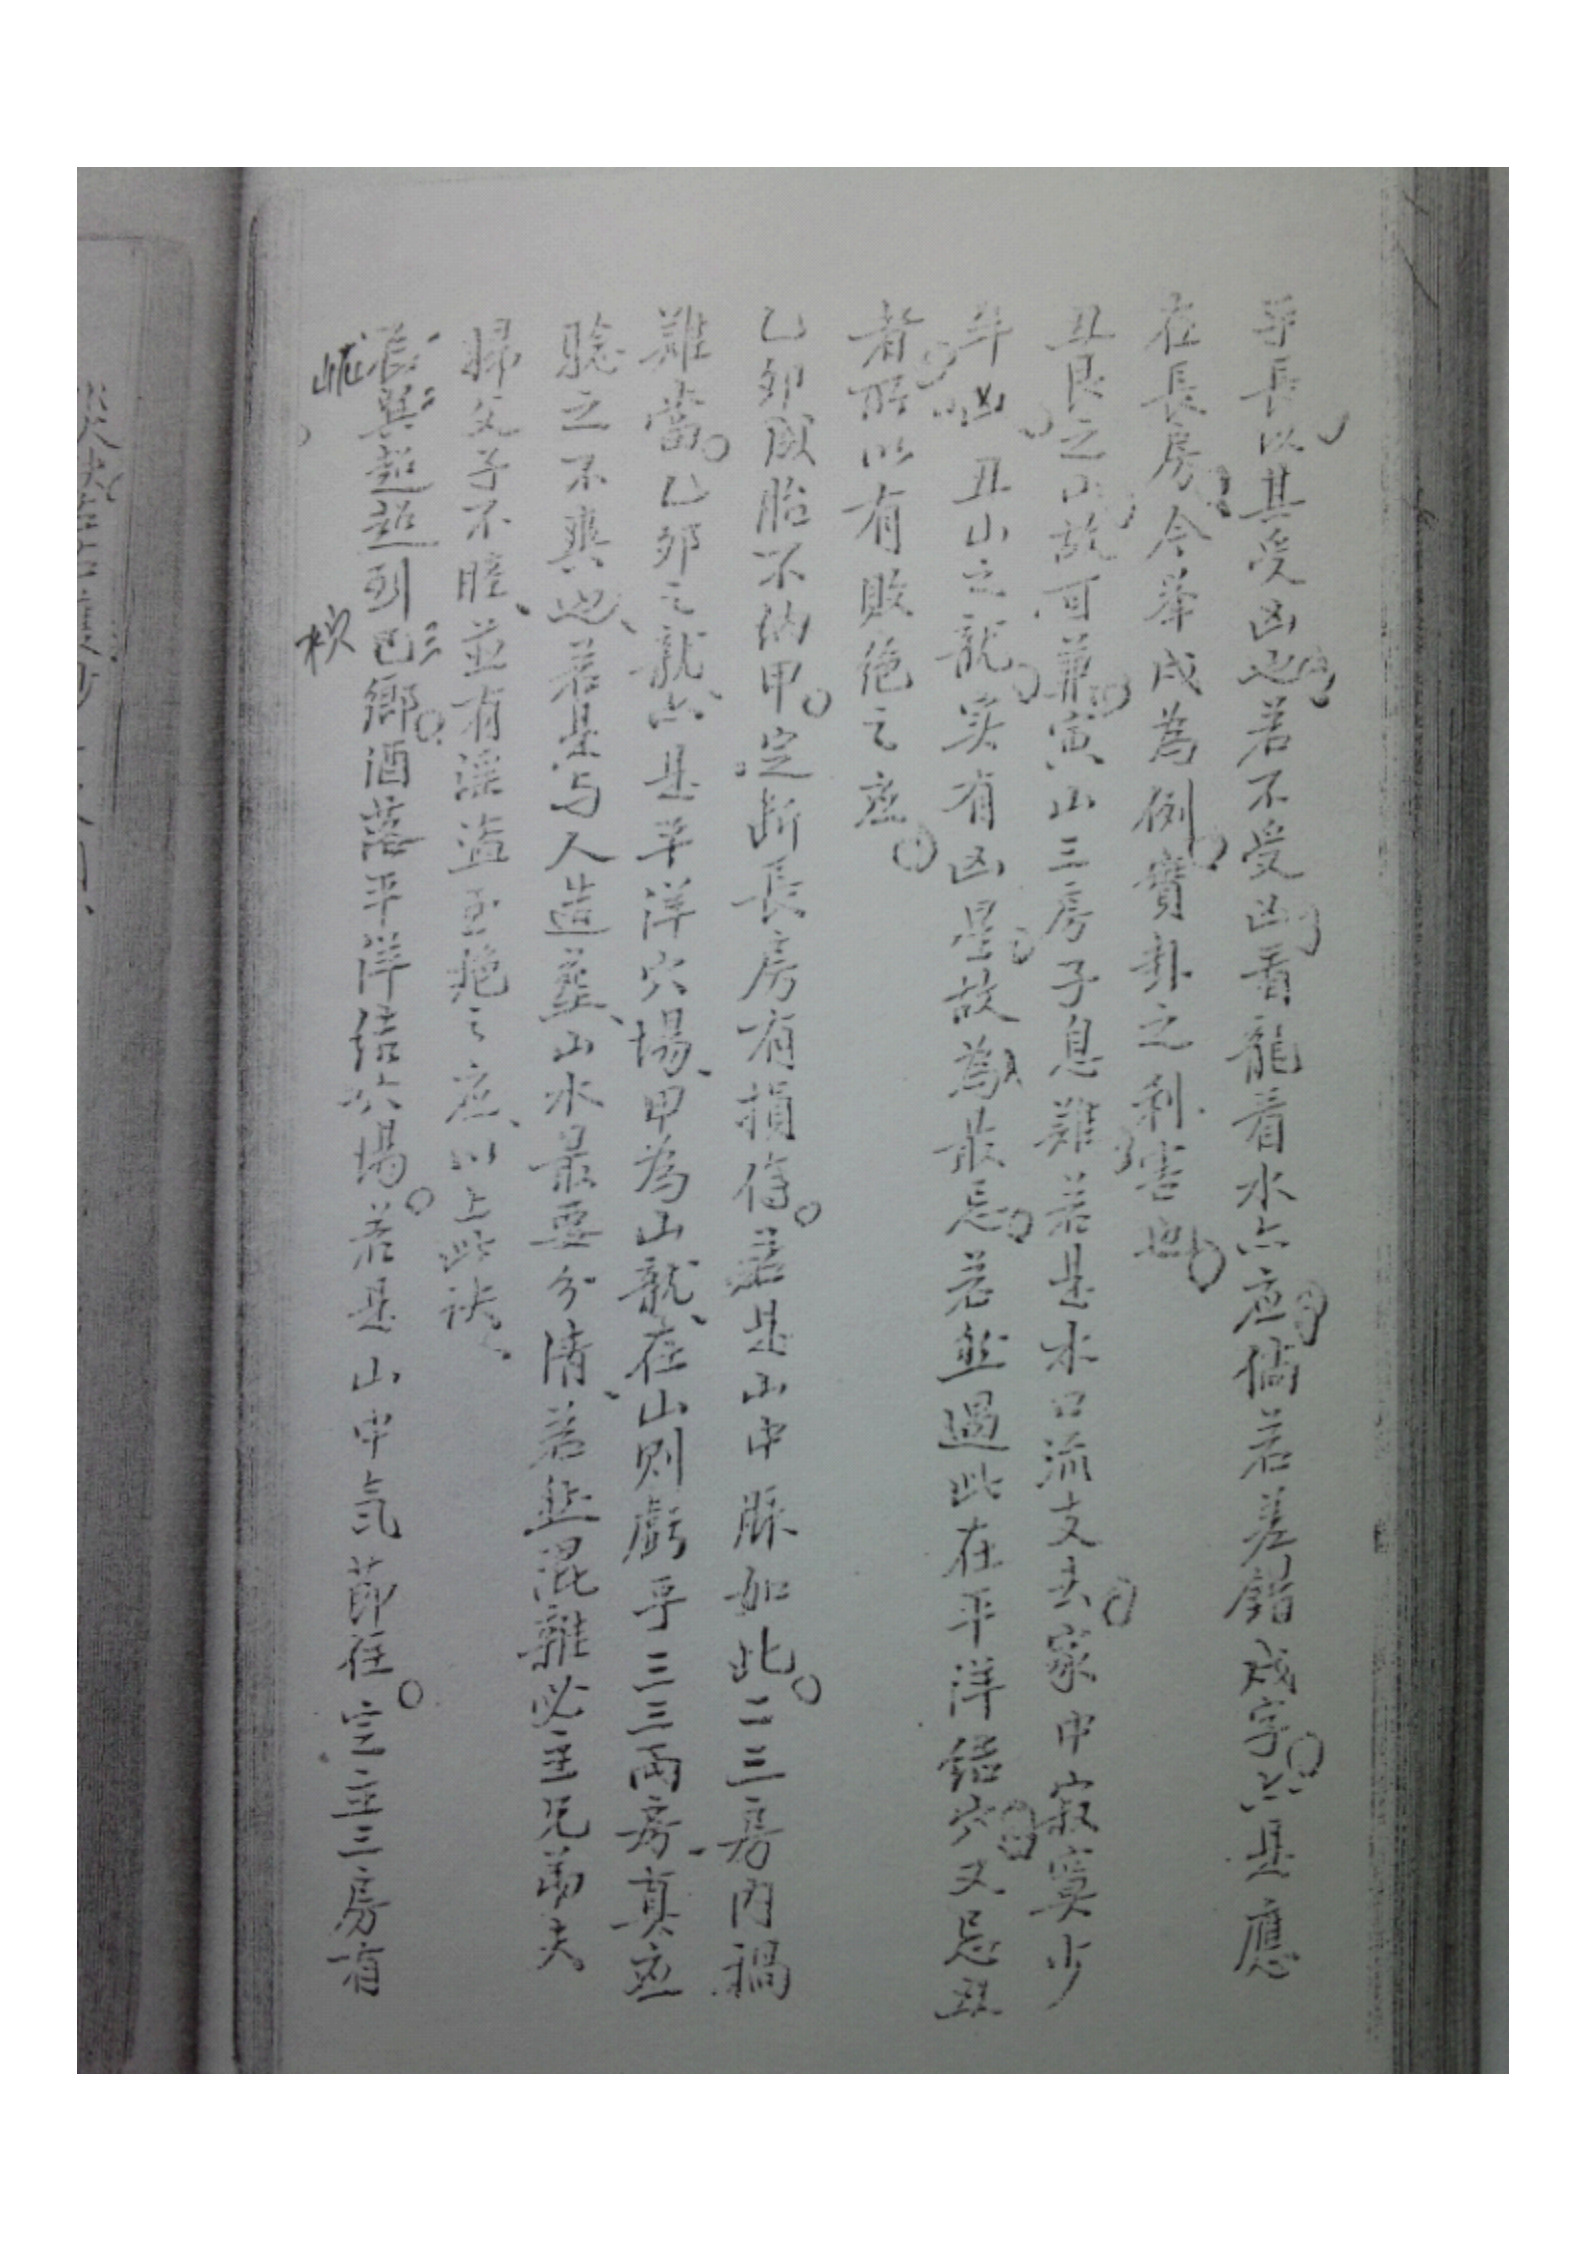 乎長以其受凶也若不受凶看龍看水亦应倘若差錯成字亦是應
在長房今舉戌為例實卦之利害也
丑艮之山故可兼寅山三房子息難若是水口流支去家中寂寞少
年凶丑山之龍实有凶星故為最忌若兼過此在平洋結穴又忌丑
者所以有敗绝之应
乙卯成胎不納甲定断長房有損傷若是山中脉如此二三房内禍
難當乙卯之龍亦是平洋穴場甲為山龍在山則虧乎三三兩房真应
驗之不爽也若是与人造葬山水最要分清若兼混雜必主兄弟夫
婦父子不睦並有淫盜至绝之应以上此訣
辰巽迢迢到巴鄉酒落平洋结穴場若是山中気節往定主三房有